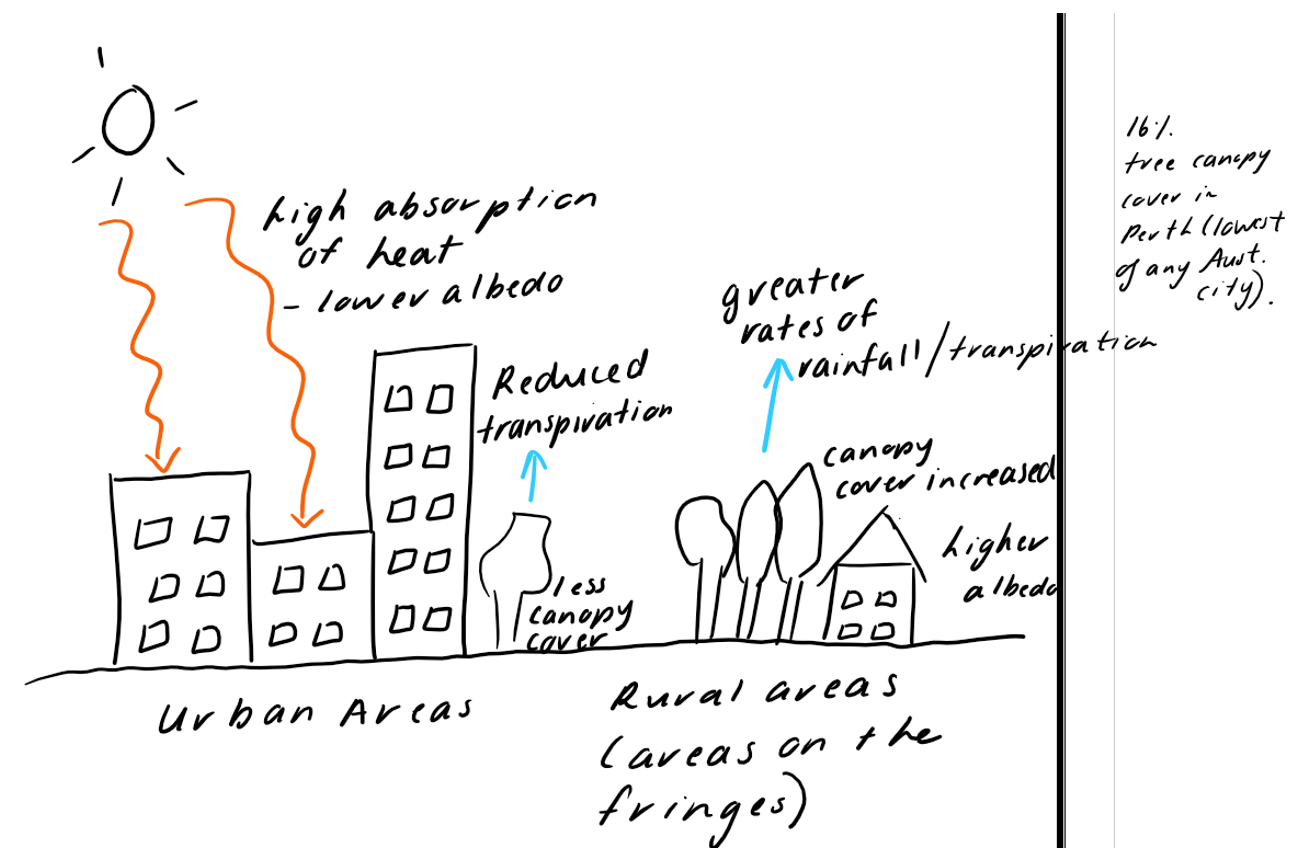 high absorption
of heat
- lower albedo
Reduced
transpiration
less
canopy
cover
greater
rates of
rainfall/transpiration
canopy
cover increased
higher
albedo
Urban Areas
Rural areas
(areas on the
fringes)
16%
tree canopy
cover in
Perth (lowest
of any Aust.
city).